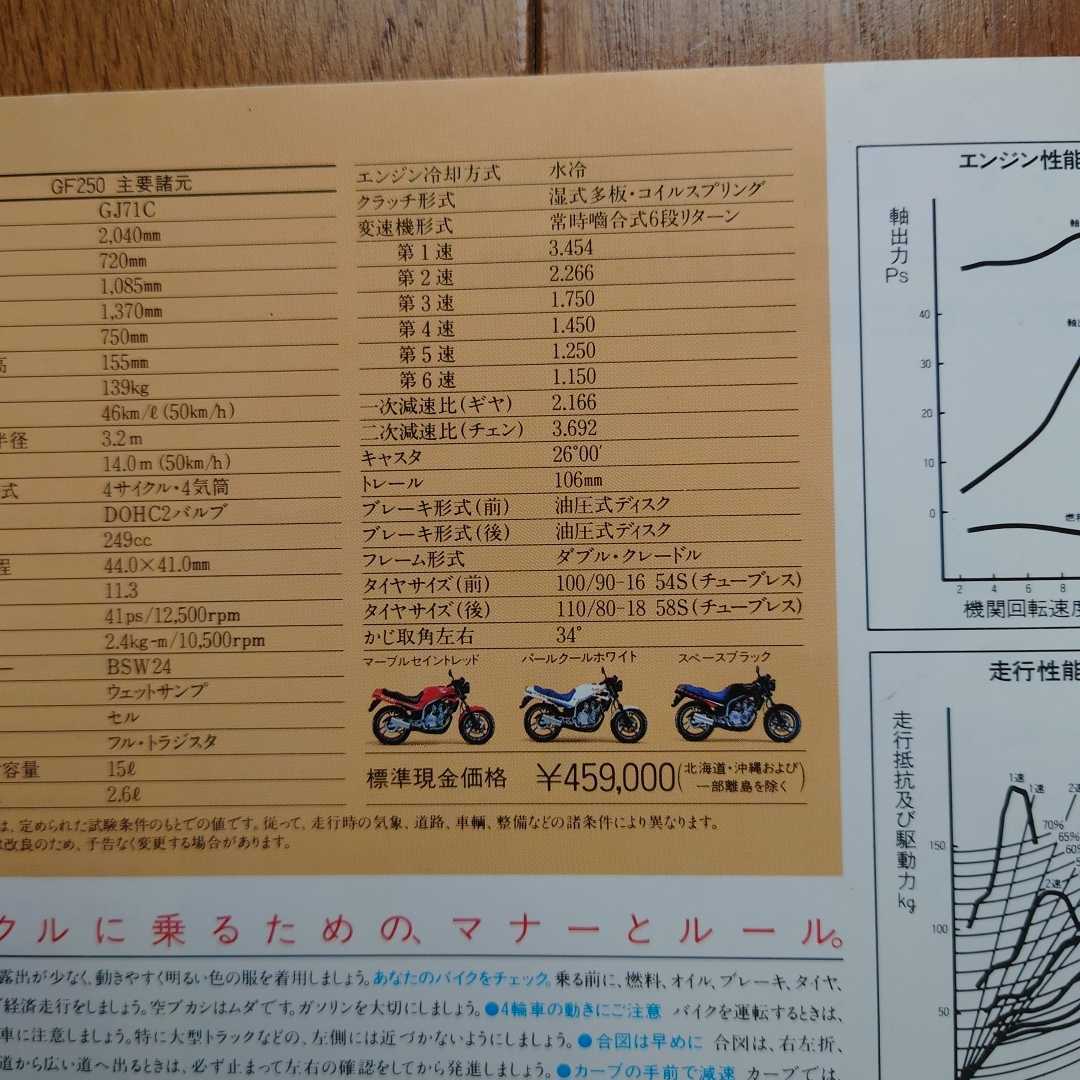 GF250 主要諸元
GJ71C
2,040mm
720mm
1,085mm
1,370mm
750mm
高 155mm
139kg
46km/ℓ (50km/h)
半径 3.2m
14.0m (50km/h)
式 4サイクル・4気筒
DOHC2バルブ
249cc
程 44.0×41.0mm
11.3
41ps/12,500rpm
2.4kg-m/10,500rpm
ー BSW24
ウェットサンプ
セル
フル・トラジスタ
容量 15ℓ
2.6ℓ
エンジン冷却方式 水冷
クラッチ形式 湿式多板・コイルスプリング
変速機形式 常時噛合式6段リターン
第1速 3.454
第2速 2.266
第3速 1.750
第4速 1.450
第5速 1.250
第6速 1.150
一次減速比(ギヤ) 2.166
二次減速比(チェン) 3.692
キャスタ 26°00′
トレール 106mm
ブレーキ形式(前) 油圧式ディスク
ブレーキ形式(後) 油圧式ディスク
フレーム形式 ダブル・クレードル
タイヤサイズ(前) 100/90-16 54S(チューブレス)
タイヤサイズ(後) 110/80-18 58S(チューブレス)
かじ取角左右 34°
マーブルセイントレッド パールクールホワイト スペースブラック
標準現金価格 ¥459,000(北海道・沖縄および
一部離島を除く)
は、定められた試験条件のもとでの値です。従って、走行時の気象、道路、車輌、整備などの諸条件により異なります。
は改良のため、予告なく変更する場合があります。
クルに乗るための、マナーとルール。
露出が少なく、動きやすく明るい色の服を着用しましょう。あなたのバイクをチェック。乗る前に、燃料、オイル、ブレーキ、タイヤ、
経済走行をしましょう。空ブカシはムダです。ガソリンを大切にしましょう。●4輪車の動きにご注意 バイクを運転するときは、
車に注意しましょう。特に大型トラックなどの、左側には近づかないようにしましょう。●合図は早めに 合図は、右左折、
道から広い道へ出るときは、必ず止まって左右の確認をしてから発進しましょう。●カーブの手前で減速 カーブでは
エンジン性能
軸出力
Ps
軸
40
軸
30
20
10
0
燃
2 4 6 8
機関回転速度
走行性能
走行抵抗及び駆動力kg
1速
1速
2速
70%
65%
60%
150
2速
100
50